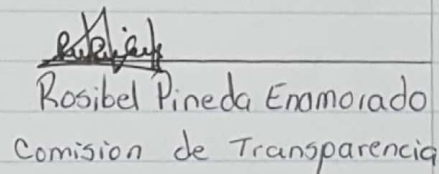 Rosibel Pineda Enamorado
Comision de Transparencia